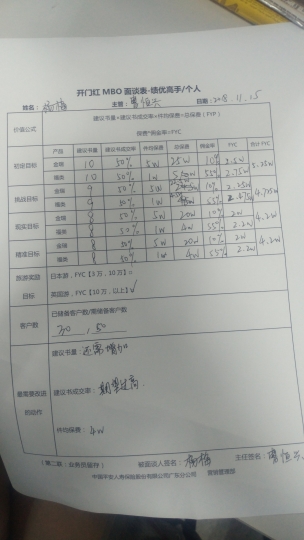 开门红 MBO 面谈表-绩优高手/个人
姓名：杨梅 主管：曹恒兴 日期：2018 11.25
价值公式 建议书量*建议书成交率*件均保费=总保费（FYP）
保费*佣金率=FYC
产品 建议书量 建议书成交率 件均保费 总保费 佣金率 FYC 合计FYC
初定目标 金瑞 10 50% 5W 25W 10% 2.5W 5.25W
福类 10 50% 1W 5W 55% 2.75W
挑战目标 金瑞 9 50% 5W 10% 2.25W 4.725W
福类 9 50% 1W 55%
现实目标 金瑞 8 50% 5W 20W 10% 2W 4.2W
福类 8 50% 1W 4W 55% 2.2W
精准目标 金瑞 8 50% 5W 20W 10% 2W 4.2W
福类 8 50% 1W 4W 55% 2.2W
旅游奖励 日本游，FYC【3万，10万】□
目标 英国游，FYC【10万，以上】√
客户数 已储备客户数/需储备客户数
30 , 50
最需要改进的动作 建议书量：还需增加
建议书成交率：期望过高
件均保费：4W
（第二联：业务员留存） 被面谈人签名：杨梅 主任签名：曹恒兴
中国平安人寿保险股份有限公司广东分公司 营销管理部